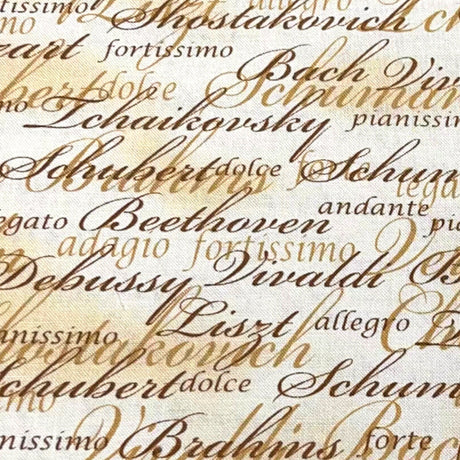 fortissimo Liszt
Shostakovich
fortissimo
Bach Viv
dolce Schuman
Tchaikovsky pianissim
Schubert dolce Schum
Brahms legat
legato Beethoven andante
adagio fortissimo
Debussy Vivaldi
Liszt allegro
anissimo
Shostakovich
Schubert dolce Schum
nissimo Brahms forte